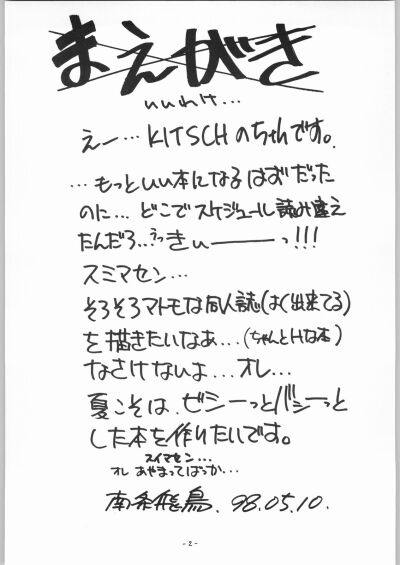 まえがき
いいわけ...
えー…KITSCHのちゃんです。
…もっといい本になるはずだった
のに…どこでスケジュール読み違え
たんだろ..うっきぃーーっ!!!
スミマセン…
そろそろマトモな同人誌(よく出来てる)
を描きたいなぁ…(ちゃんとHな本)
なさけないよ...オレ...
夏こそは、ビシーっとバシーっと
した本を作りたいです。
スイマセン...
オレ あやまってばっか...
南条飛鳥. 98.05.10.
-2-